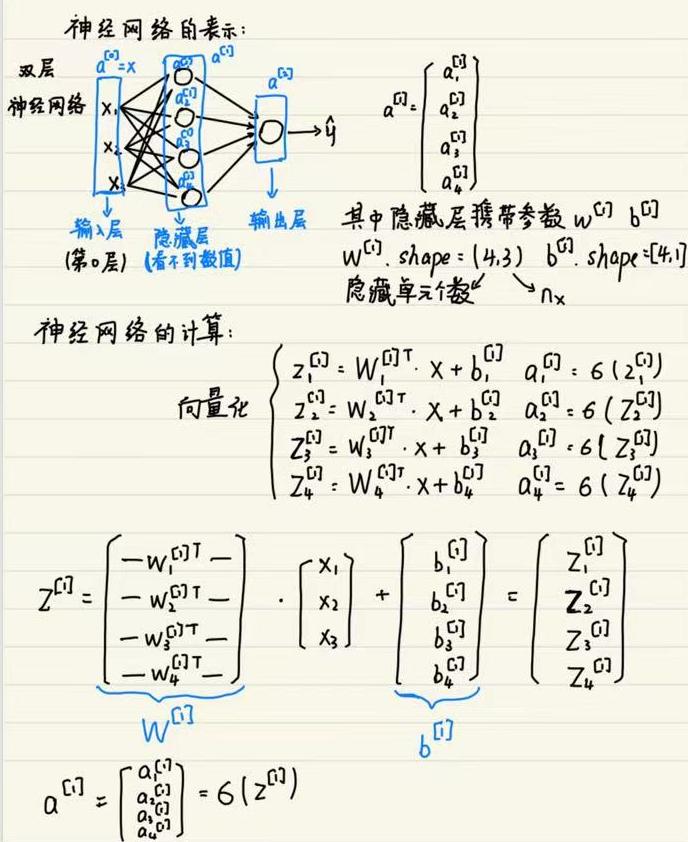 神经网络的表示:
双层
神经网络
a^[0]=x
a^[1]
a^[2]
x₁
x₂
x₃
a₁^[1]
a₂^[1]
a₃^[1]
a₄^[1]
ŷ
输入层
(第0层)
隐藏层
(看不到数值)
输出层
a^[1]=
a₁^[1]
a₂^[1]
a₃^[1]
a₄^[1]
其中隐藏层携带参数 w^[1] b^[1]
w^[1].shape=(4,3) b^[1].shape=[4,1]
隐藏单元个数 nx
神经网络的计算:
向量化
z₁^[1] = W₁^[1]T · X + b₁^[1] a₁^[1] = 6(z₁^[1])
z₂^[1] = W₂^[1]T · X + b₂^[1] a₂^[1] = 6(Z₂^[1])
Z₃^[1] = W₃^[1]T · x + b₃^[1] a₃^[1] = 6(Z₃^[1])
Z₄^[1] = W₄^[1]T · x + b₄^[1] a₄^[1] = 6(Z₄^[1])
Z^[1] =
— W₁^[1]T — x₁ b₁^[1] Z₁^[1]
— W₂^[1]T — · x₂ + b₂^[1] = Z₂^[1]
— W₃^[1]T — x₃ b₃^[1] Z₃^[1]
— W₄^[1]T — b₄^[1] Z₄^[1]
W^[1]
b^[1]
a^[1] =
a₁^[1]
a₂^[1]
a₃^[1]
a₄^[1]
= 6(z^[1])